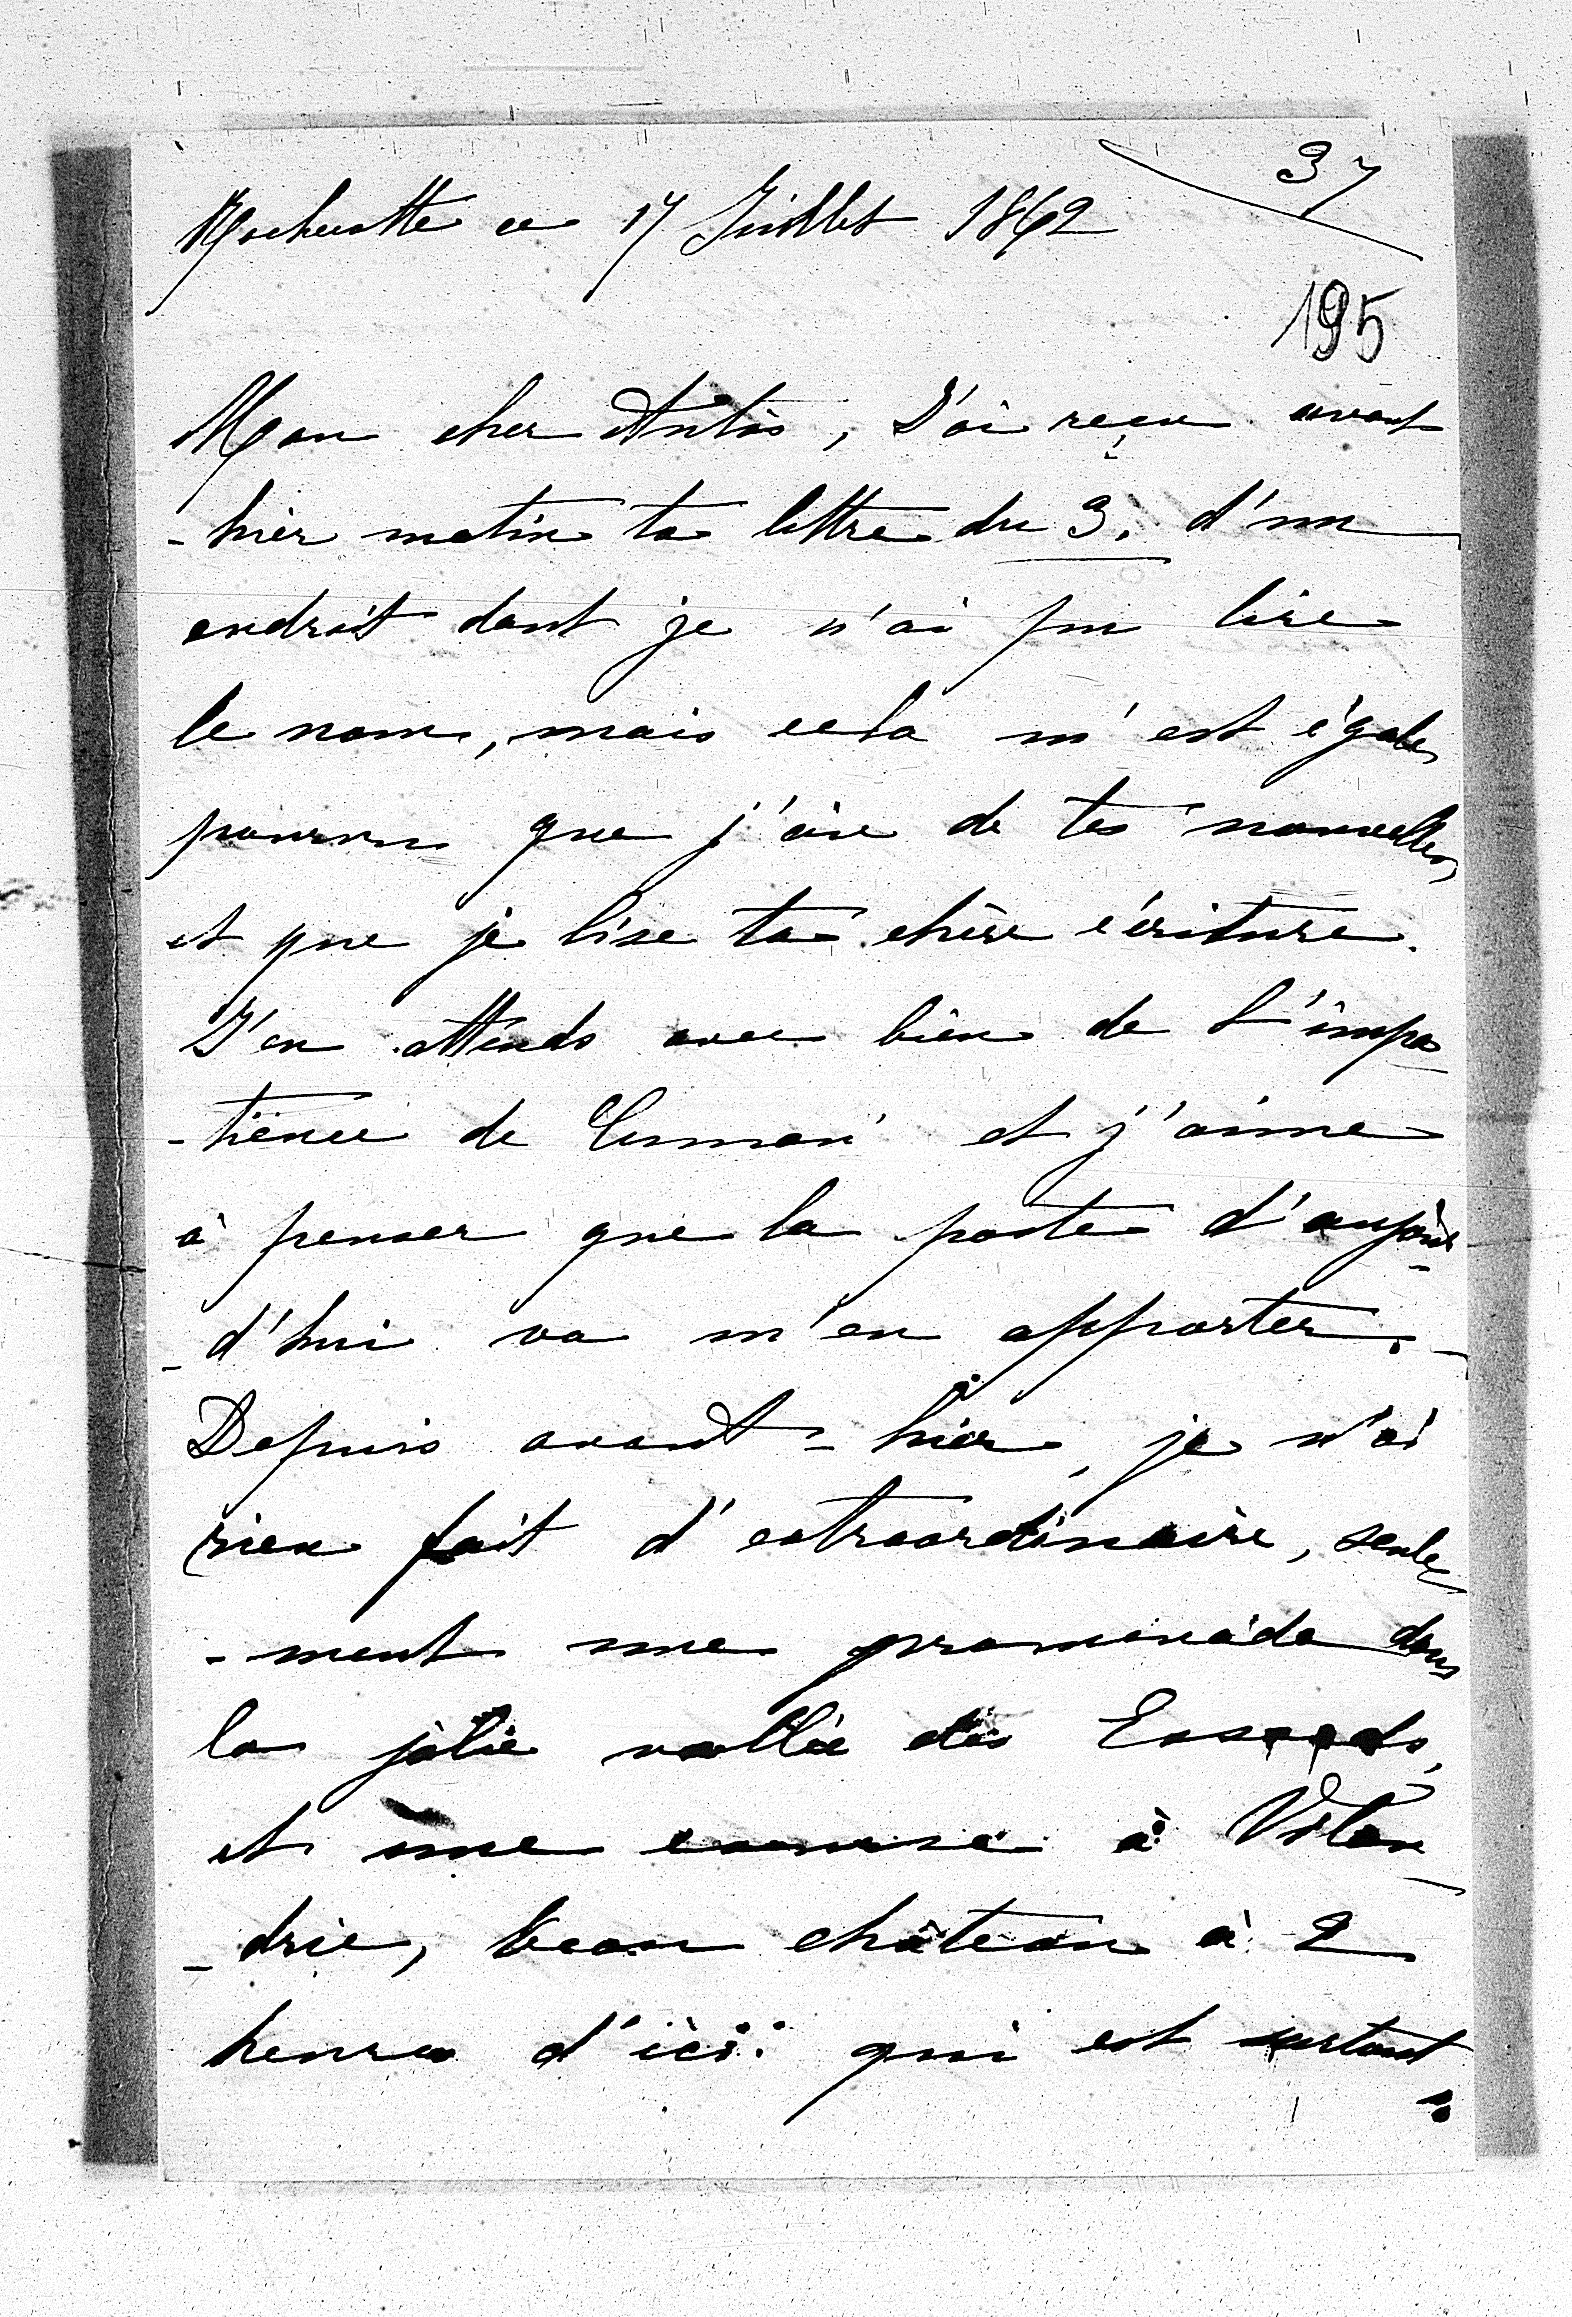 37
Rochecotte ce 17 Juillet 1862
195
Mon cher Antos, J'ai reçu avant
-hier matin ta lettre du 3. d'un
endroit dont je n'ai pu lire
le nom, mais cela m'est égal,
pourvu que j'aie de tes nouvelles
et que je lise ta chère écriture.
J'en attends avec bien de l'impa
-tience de et j'aime
à penser que la poste d'aujour
-d'hui va m'en apporter. -
Depuis avant-hier, je n'ai
rien fait d'extraordinaire, seule
-ment une promenade dans
la jolie vallée des
et une course à Vilan
-drie, beau château à 2
heures d'ici. qui est surtout